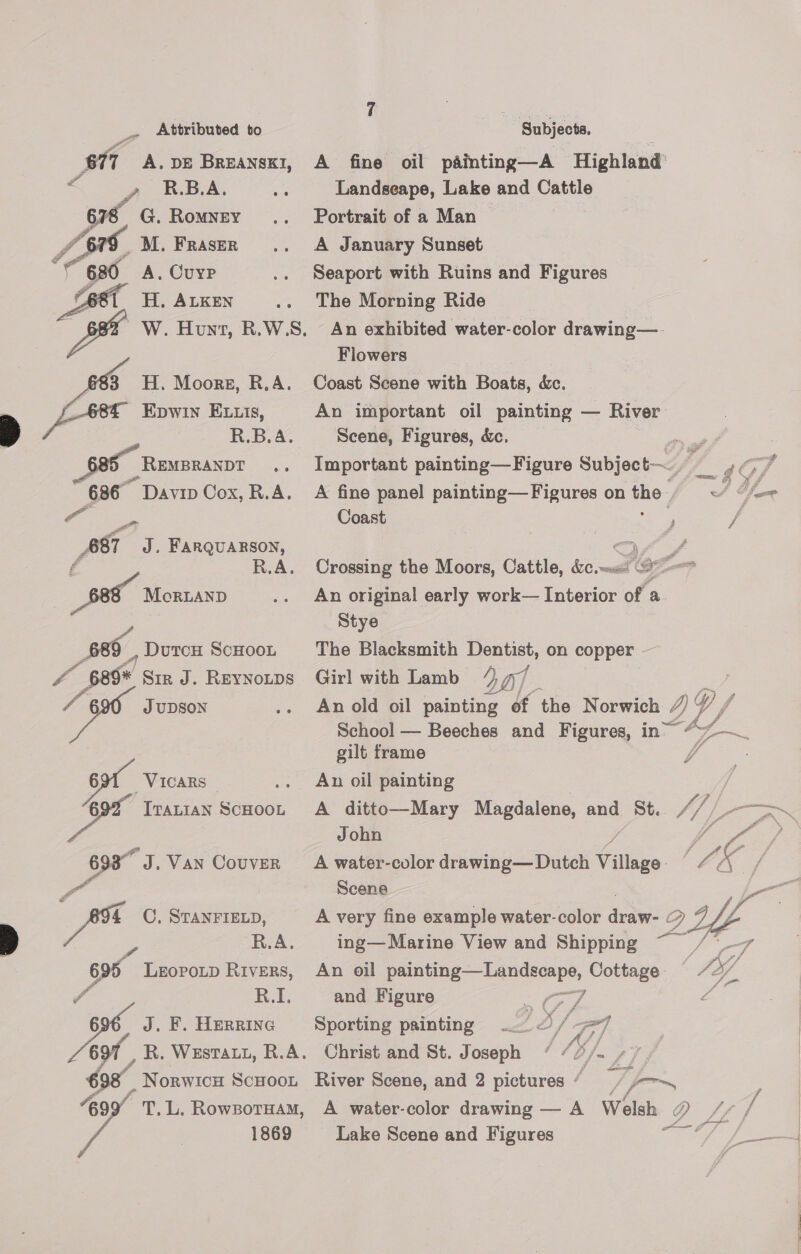 7
Attributed to Subjects.
677 A. DE BREANSKI, A fine oil painting—A Highland
R.B.A. .. Landscape, Lake and Cattle
678 G. ROMNEY .. Portrait of a Man
679 M. FRASER .. A January Sunset
680 A. CUYP .. Seaport with Ruins and Figures
681 H. ALKEN .. The Morning Ride
682 W. HUNT, R.W.S. An exhibited water-color drawing—
Flowers
683 H. MOORE, R.A. Coast Scene with Boats, &c.
684 EDWIN ELLIS, An important oil painting — River
R.B.A. Scene, Figures, &c.
685 REMBRANDT .. Important painting—Figure Subject
686 DAVID COX, R.A. A fine panel painting—Figures on the
Coast
687 J. FARQUARSON, 
R.A. Crossing the Moors, Cattle, &c.
688 MORLAND .. An original early work—Interior of a
Stye
689 DUTCH SCHOOL The Blacksmith Dentist, on copper
689* SIR J. REYNOLDS Girl with Lamb
690 JUDSON .. An old oil painting of the Norwich
School — Beeches and Figures, in
gilt frame
691 VICARS .. An oil painting
692 ITALIAN SCHOOL A ditto—Mary Magdalene, and St.
John
693 J. VAN COUVER A water-color drawing—Dutch Village
Scene
694 C. STANFIELD, A very fine example water-color draw-
R.A. ing—Marine View and Shipping
695 LEOPOLD RIVERS, An oil painting—Landscape, Cottage
R.I. and Figure
696 J. F. HERRING Sporting painting
697 R. WESTALL, R.A. Christ and St. Joseph
698 NORWICH SCHOOL River Scene, and 2 pictures
699 T. L. ROWBOTHAM, A water-color drawing — A Welsh
1869 Lake Scene and Figures